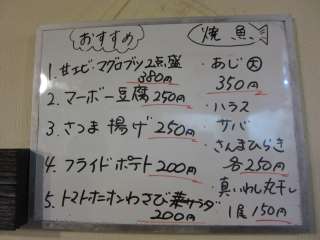 おすすめ
1. 甘エビ・マグロブツ2点盛
380円
2. マーボー豆腐 250円
3. さつま揚げ 250円
4. フライドポテト 200円
5. トマトオニオンわさび菜サラダ
200円
焼魚
・あじ 大
350円
・ハラス
・サバ
・さんまひらき
各250円
・真いわし丸干し
1尾150円